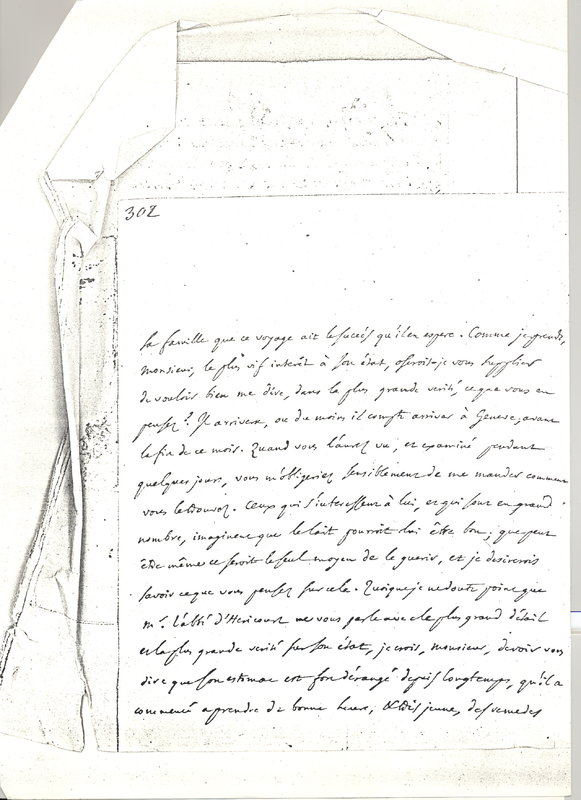 302
sa famille que ce voyage ait le succès qu'il en espere. Comme je prends,
monsieur, le plus vif interêt à son état, oserois-je vous supplier
de vouloir bien me dire, dans la plus grande verité, ce que vous en
pensez? Il arrivera, ou du moins il compte arriver à Geneve, avant
la fin de ce mois. Quand vous l'aurez vu, et examiné pendant
quelques jours, vous m'obligeriez sensiblement de me mander comment
vous le trouvez. Ceux qui s'interessent à lui, et qui sont en grand
nombre, imaginent que le lait pourroit lui être bon, que peut
être même ce seroit le seul moyen de le guerir, et je desirerois
savoir ce que vous pensez sur cela. Quoique je ne doute point que
mr. l'abbé d'Hericourt ne vous parle avec le plus grand détail
et la plus grande verité sur son état, je crois, monsieur, devoir vous
dire que son estomac est fort dérangé depuis longtemps, qu'il a
commencé a prendre de bonne heure, et dès jeune, des remedes